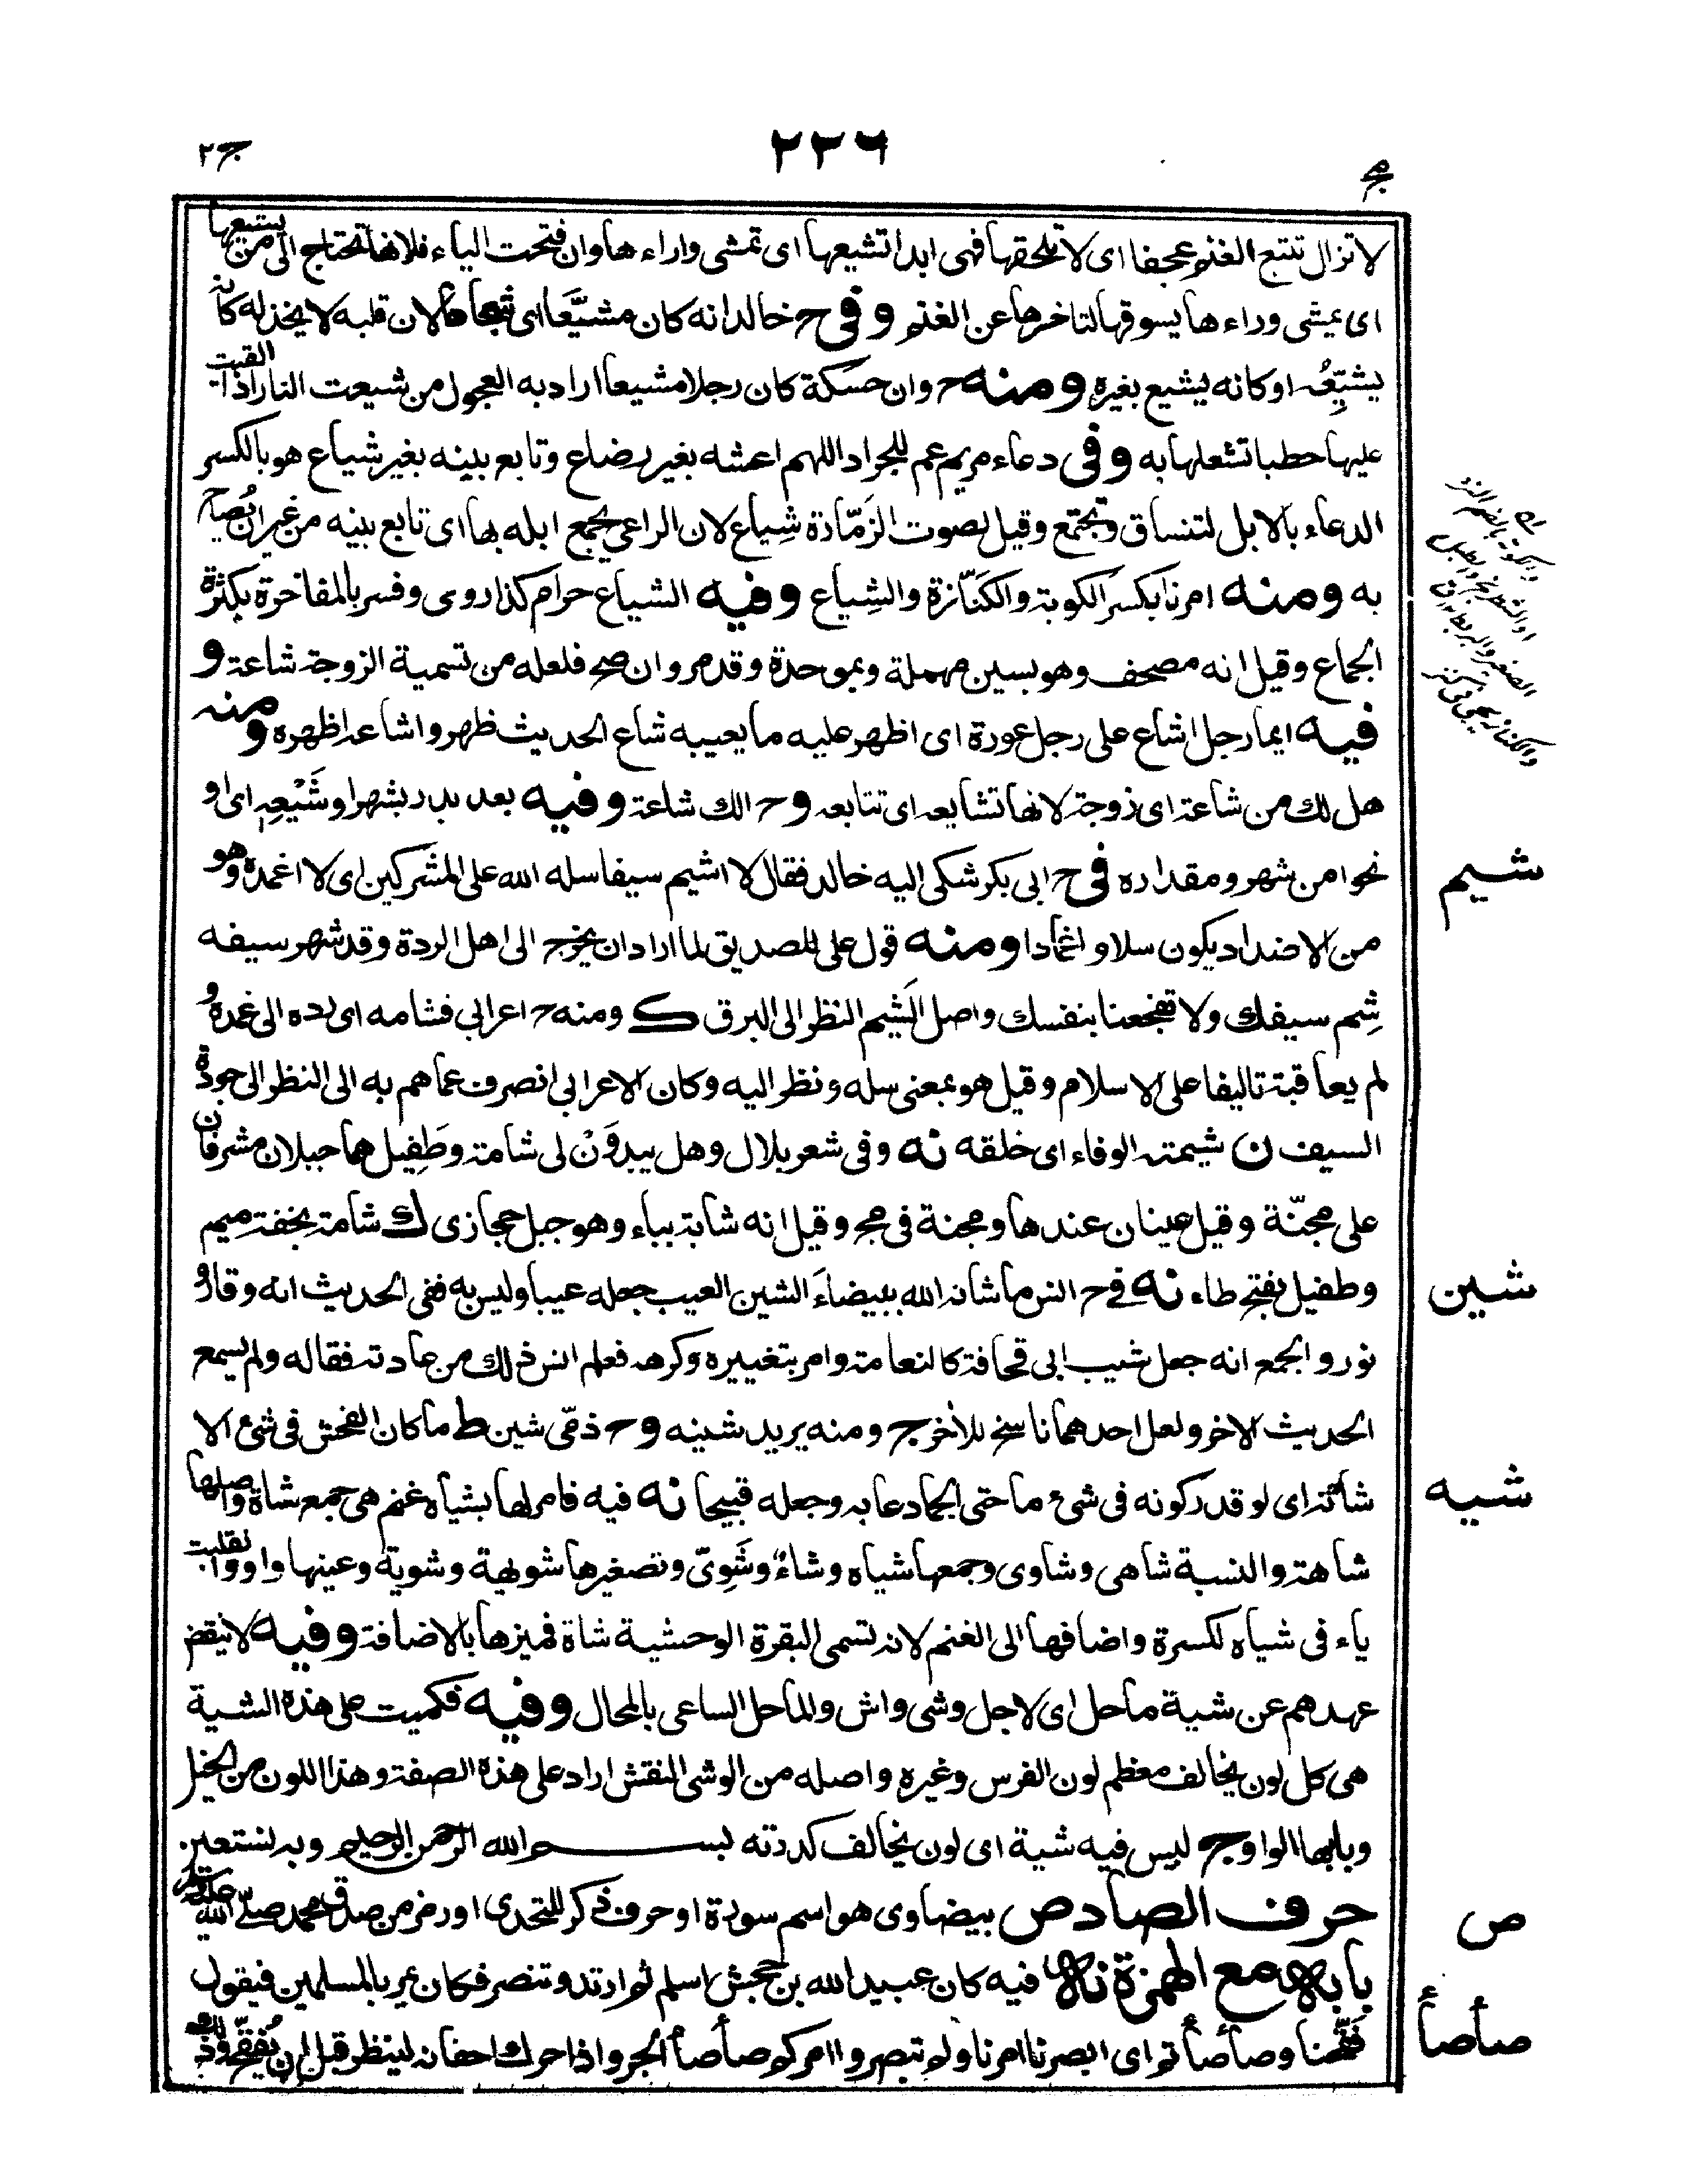 ج٢
٢٣٦
مج
لا تزال تتبع الغنم عجفا اى لا تلحقها فهى ابدا تشيعها اى تمشى واراءها وان فتحت الياء فلانها تحتاج الى من يشيعها
اى يمشى وراءها يسوقها لتاخرها عن الغنم وفى ح خالد انه كان مشيَّعا اى شجاعا لان قلبه لا يخذله كانه
يشيِّعُه او كانه يشيع بغيره ومنه ح وان حسكة كان رجلا مشيعا اراد به العجول من شيعت النار اذا القيت
عليها حطبا تشعلها به وفى دعاء مريم عم للجراد اللهم اعشه بغير رضاع وتابع بينه بغير شياع هو بالكسر
الدعاء بالابل لتنساق وتجتمع وقيل لصوت الزَمّارة شِياع لان الراعى يجمع ابله بها اى تابع بينه من غير ان يُصاح
به ومنه امرنا بكسر الكوبة والكَنّازة والشِياع وفيه الشياع حرام كذا روى وفسر بالمفاخرة بكثرة
الجماع وقيل انه مصحف وهو بسين مهملة وبموحدة وقد مر وان صح فلعله من تسمية الزوجة شاعة و
فيه ايما رجل اشاع على رجل عورة اى اظهر عليه ما يعيبه شاع الحديث ظهر واشاعه اظهره ومنه
هل لك من شاعة اى زوجة لانها تشايعه اى تتابعه وح الك شاعة وفيه بعد بدر بشهر او شَيْعِه اى او
نحوا من شهر ومقداره فى ح ابى بكر شكى اليه خالد فقال لا اشيم سيفا سله الله على المشركين اى لا اغمده وهو
من الاضداد يكون سلا و اغمادا ومنه قول على للصديق لما اراد ان يخرج الى اهل الردة وقد شهر سيفه
شِم سيفك ولا تفجعنا بنفسك واصل الشَيم النظر الى البرق ك ومنه ح اعرابى فشامه اى رده الى غمده و
لم يعاقبة تاليفا على الاسلام وقيل هو بمعنى سله ونظر اليه وكان الاعرابى انصرف عما هم به الى النظر الى جودة
السيف ن شيمته الوفاء اى خلقه نه وفى شعر بلال وهل يبدوَنْ لى شامة وطَفِيل هما جبلان مشرفان
على مجنّة وقيل عينان عندها ومجنة فى مج وقيل انه شابة بباء وهو جبل حجازى ك شامة بخفة ميم
وطفيل بفتح طاء نه فى ح انس ما شانه الله ببيضاءَ الشين العيب جعله عيبا وليس به ففى الحديث انه وقار و
نور والجمع انه جعل شيب ابى قحافة كالنعامة وامر بتغييره وكرهه فعلم انس ذلك من عادته فقاله ولم يسمع
الحديث الاخر ولعل احدهما ناسخ للاخر ج ومنه يريد شينه وح ذمّى شين ط ما كان الفحش فى شئ الا
شأنه اى لو قدر كونه فى شئ ما حتى الجماد عابه وجعله قبيحا نه فيه فامر لها بشياه غنم هى جمع شاة واصلها
شاهة والنسبة شاهى وشاوى وجمعها شياه وشاءٌ وشَوِىّ وتصغيرها شويهة وشوية وعينها واو وانقلبت
ياء فى شياه لكسرة واضافها الى الغنم لانه تسمى البقرة الوحشية شاة فميزها بالاضافة وفيه لا ينقض
عهدهم عن شية ماحل اى لاجل وشى واش والماحل الساعى بالمحال وفيه فكميت على هذه الشية
هى كل لون يخالف معظم لون الفرس وغيره واصله من الوشى النقش اراد على هذه الصفة وهذا اللون من الخيل
وبابها الواو ج ليس فيه شية اى لون يخالف كدرته بسم الله الرحمن الرحيم وبه نستعين
حرف الصاد ص بيضاوى هو اسم سورة او حرف ذكر للتحدى او رمز من صدق محمد صلى الله عليه وسلم
بابه مع الهمزة نه فيه كان عبيد الله بن جحش اسلم ثم ارتد وتنصر فكان يمر بالمسلمين فيقول
فَقَّحنا وصأصأتم اى ابصرنا امرنا ولم تبصروا امركم صأصأ الجرو اذا حرك اجفانه لينظر قبل ان يُفقِّح وذلك
شيم
شين
شيه
ص
صأصأ